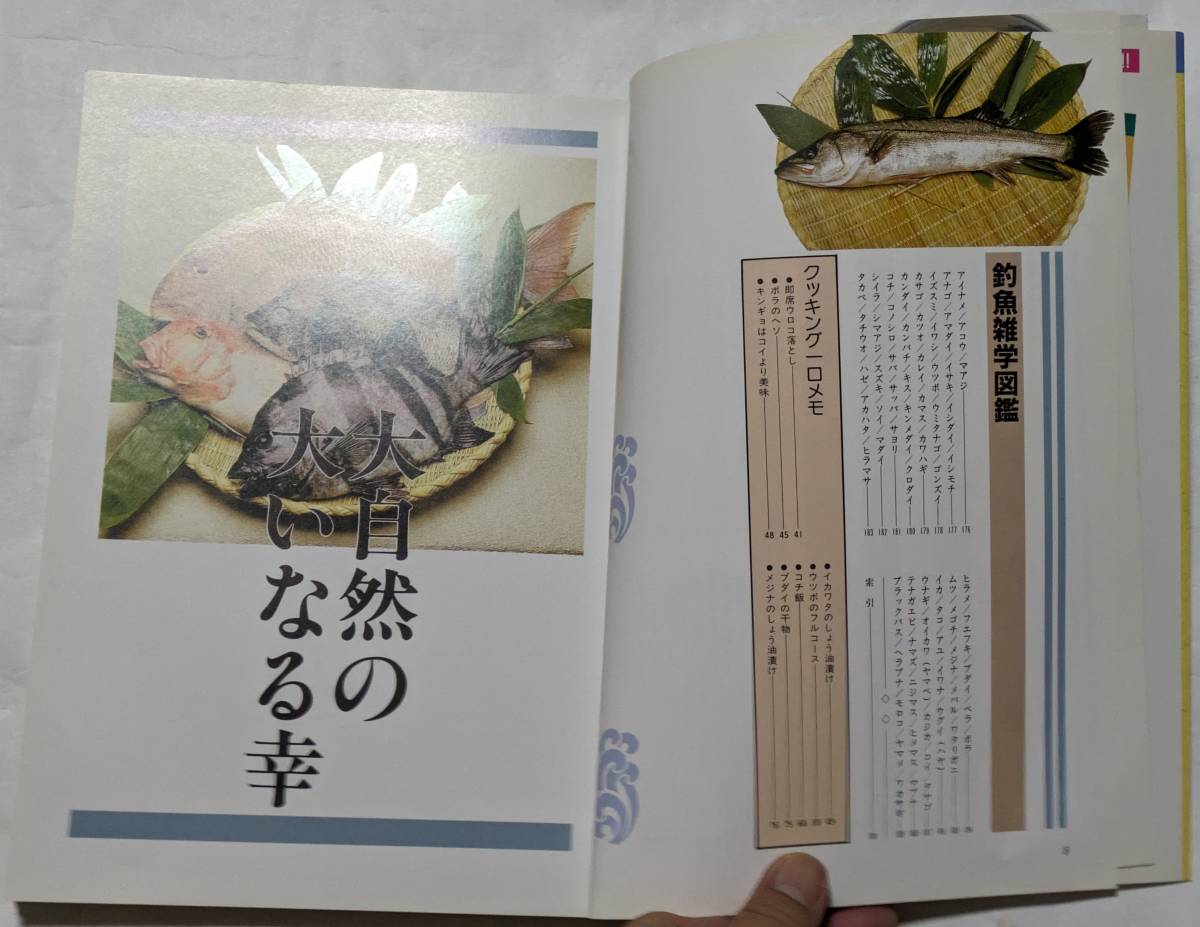 釣魚雑学図鑑
アイナメ/アコウ/マアジ 176
アナゴ/アマダイ/イサキ/イシダイ/イシモチ 177
イズスミ/イワシ/ウツボ/ウミタナゴ/ゴンズイ 178
カサゴ/カツオ/カレイ/カマス/カワハギ 179
カンダイ/カンパチ/キス/キンメダイ/クロダイ 180
コチ/コノシロ/サバ/サッパ/サヨリ 181
シイラ/シマアジ/スズキ/ソイ/マダイ 182
タカベ/タチウオ/ハゼ/アカハタ/ヒラマサ 183
ヒラメ/フエフキ/ブダイ/ベラ/ボラ
ムツ/メゴチ/メジナ/メバル/ワタリガニ
イカ/タコ/アユ/イワナ/ウグイ(ハヤ)
ウナギ/オイカワ(ヤマベ)/カジカ/コイ/タナゴ
テナガエビ/ナマズ/ニジマス/ヒメマス
ブラックバス/ヘラブナ/モロコ/ヤマメ/ワカサギ
◇ ◇
索引
クッキング一口メモ
●即席ウロコ落とし 41
●ボラのヘソ 45
●キンギョはコイより美味 48
●イカワタのしょう油漬け
●ウツボのフルコース
●コチ飯
●ブダイの干物
●メジナのしょう油漬け
大自然の
大いなる幸